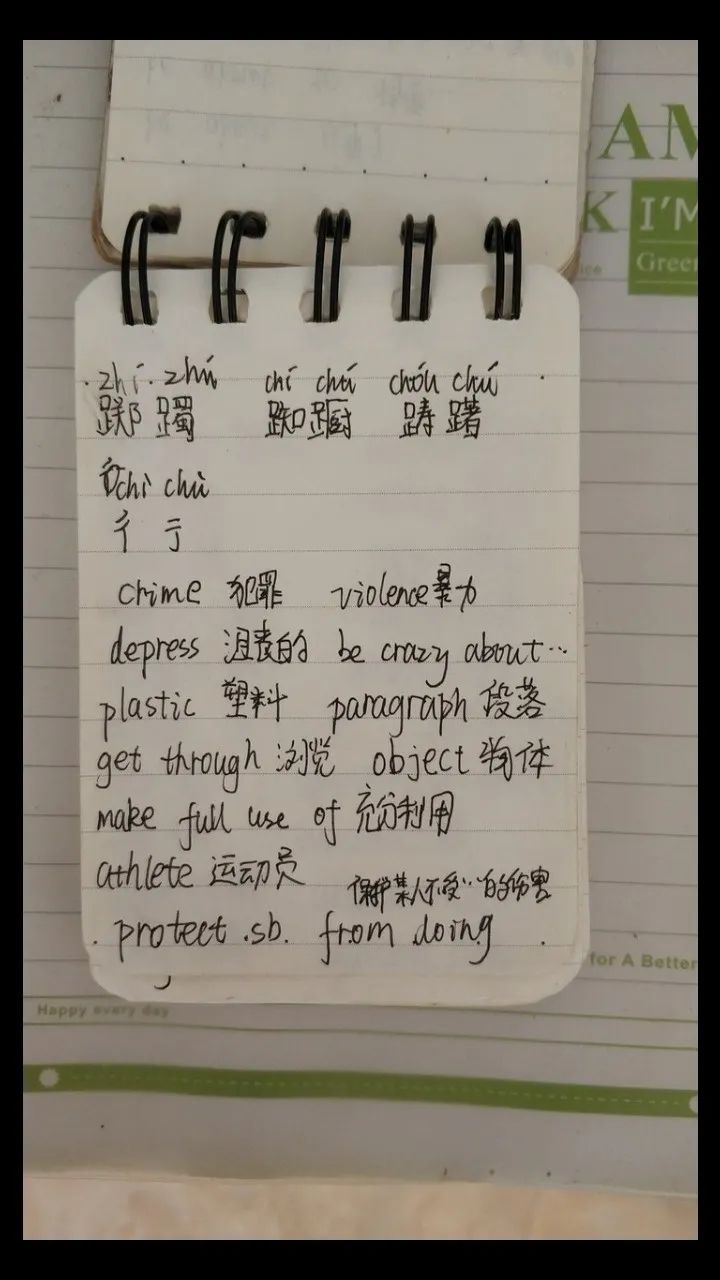 AM
K I'M
Green
ice
zhí zhú chí chú chóu chú
踯躅 踟蹰 踌躇
chì chù
彳 亍
crime 犯罪 violence 暴力
depress 沮丧的 be crazy about…
plastic 塑料 paragraph 段落
get through 浏览 object 物体
make full use of 充分利用
athlete 运动员
保护某人不受…的伤害
protect sb. from doing
for A Better
Happy every day